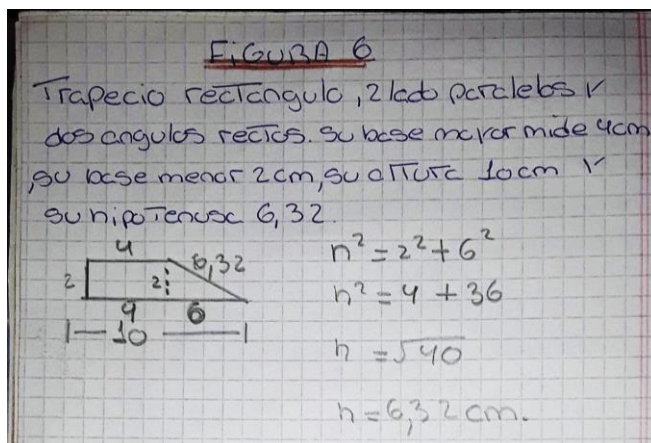 FiGURA 6
Trapecio rectangulo, 2 lado paralelos y
dos angulos rectos. Su base mayor mide 4cm
, su base menor 2cm, su altura 10cm y
su hipotenusa 6,32.
4
6,32
2
2
4
6
10
h² = 2² + 6²
h² = 4 + 36
h = √40
h = 6,32 cm.